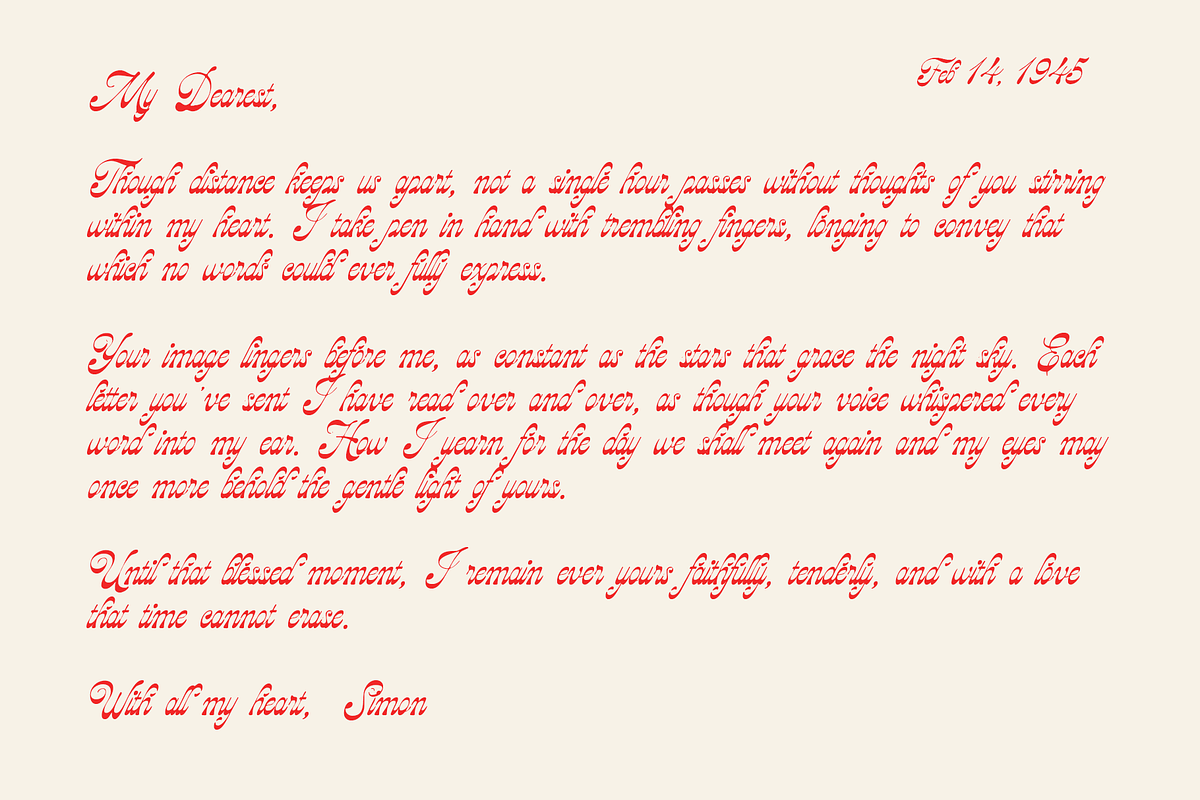 Feb 14, 1945
My Dearest,
Though distance keeps us apart, not a single hour passes without thoughts of you stirring
within my heart. I take pen in hand with trembling fingers, longing to convey that
which no words could ever fully express.
Your image lingers before me, as constant as the stars that grace the night sky. Each
letter you've sent I have read over and over, as though your voice whispered every
word into my ear. How I yearn for the day we shall meet again and my eyes may
once more behold the gentle light of yours.
Until that blessed moment, I remain ever yours faithfully, tenderly, and with a love
that time cannot erase.
With all my heart, Simon